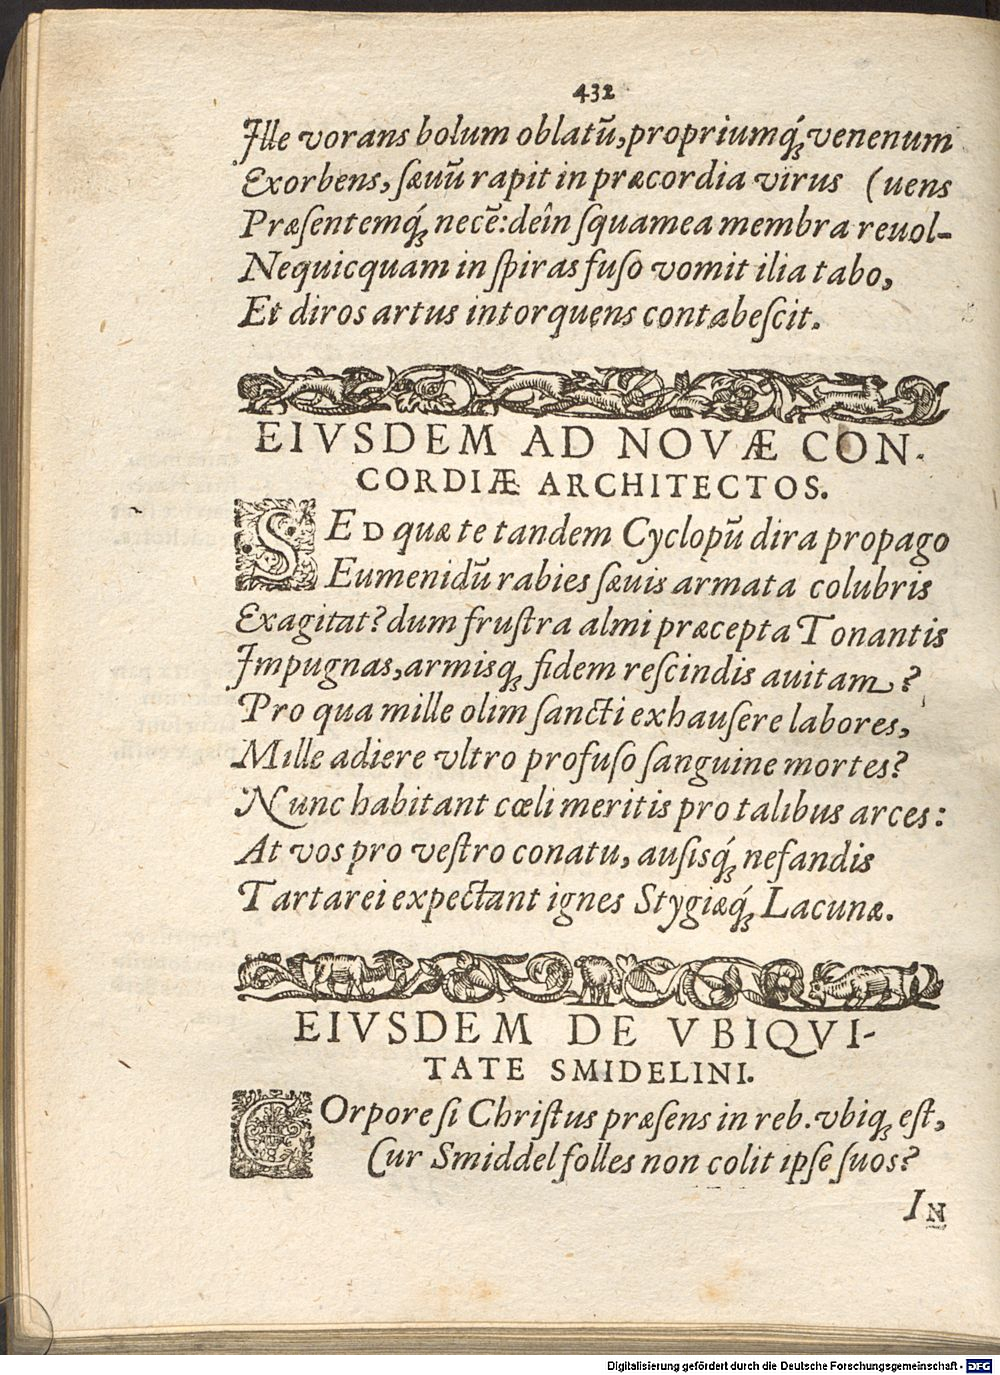 432
Ille vorans bolum oblatū, propriumq́ꝫ venenum
Exorbens, sæuū rapit in præcordia virus (uens
Præsentemq́ꝫ necē: deîn squamea membra reuol-
Nequicquam in spiras fuso vomit ilia tabo,
Et diros artus intorquens contabescit.
EIVSDEM AD NOVÆ CON-
CORDIÆ ARCHITECTOS.
SED quæ te tandem Cyclopū dira propago
Eumenidū rabies sæuis armata colubris
Exagitat? dum frustra almi præcepta Tonantis
Impugnas, armisqꝫ fidem rescindis auitam?
Pro qua mille olim sancti exhausere labores,
Mille adiere vltro profuso sanguine mortes?
Nunc habitant cœli meritis pro talibus arces:
At vos pro vestro conatu, ausisq́ꝫ nefandis
Tartarei expectant ignes Stygiæq́ꝫ Lacunæ.
EIVSDEM DE VBIQVI-
TATE SMIDELINI.
COrpore si Christus præsens in reb. vbiqꝫ est,
Cur Smiddel folles non colit ipse suos?
IN
Digitalisierung gefördert durch die Deutsche Forschungsgemeinschaft - DFG